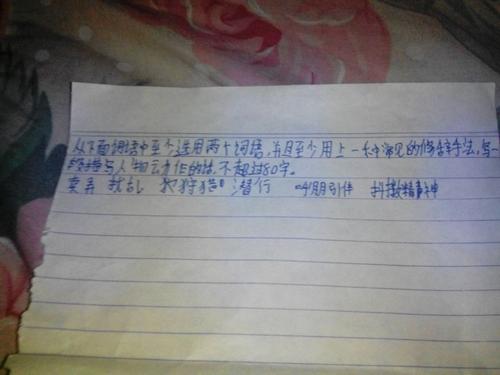 从下面词语中至少选用两个词语,并且至少用上一种常见的修辞手法,写一
段描写人物云力作的话,不超过80字。
卖弄 扰乱 狗 潜行 呼朋引伴 抖擞精神